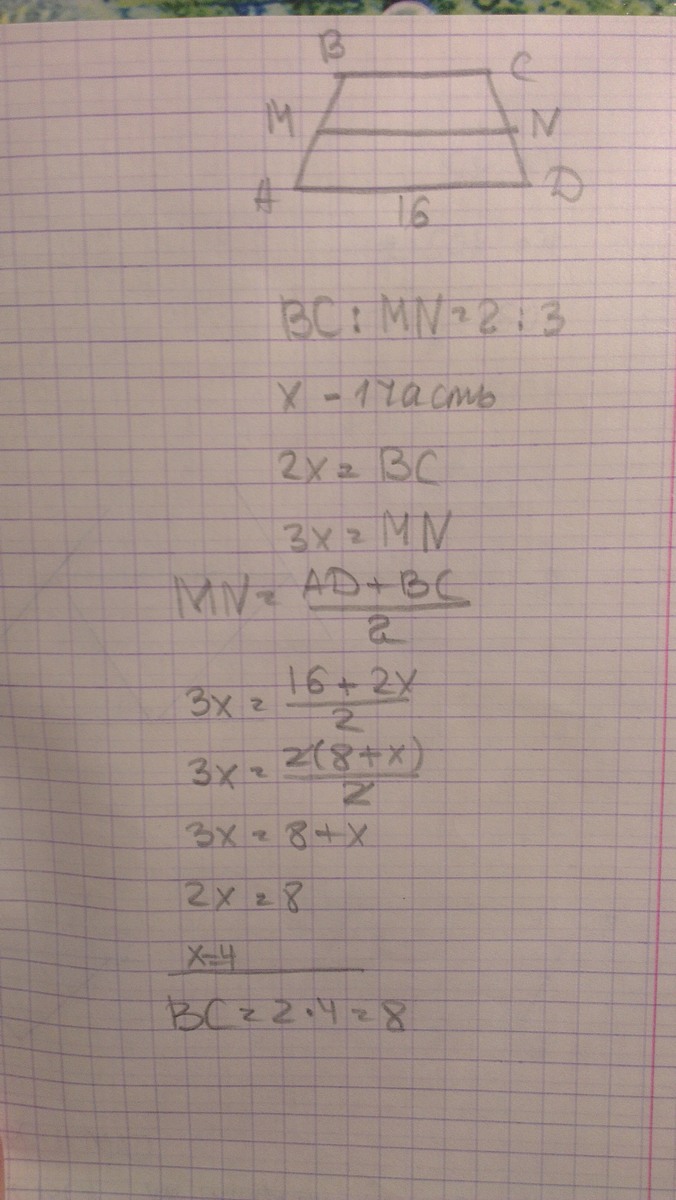 B
C
M
N
A
D
16
BC : MN = 2 : 3
x - 1 часть
2x = BC
3x = MN
MN = (AD + BC) / 2
3x = (16 + 2x) / 2
3x = 2(8 + x) / 2
3x = 8 + x
2x = 8
x = 4
BC = 2 · 4 = 8